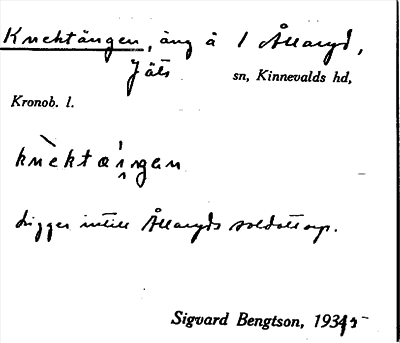 Knektängen, äng å 1 Ållaryd,
Jäts sn, Kinnevalds hd,
Kronob. l.
knèktæŋgən
Ligger intill Ållaryds soldattorp.
Sigvard Bengtson, 1935